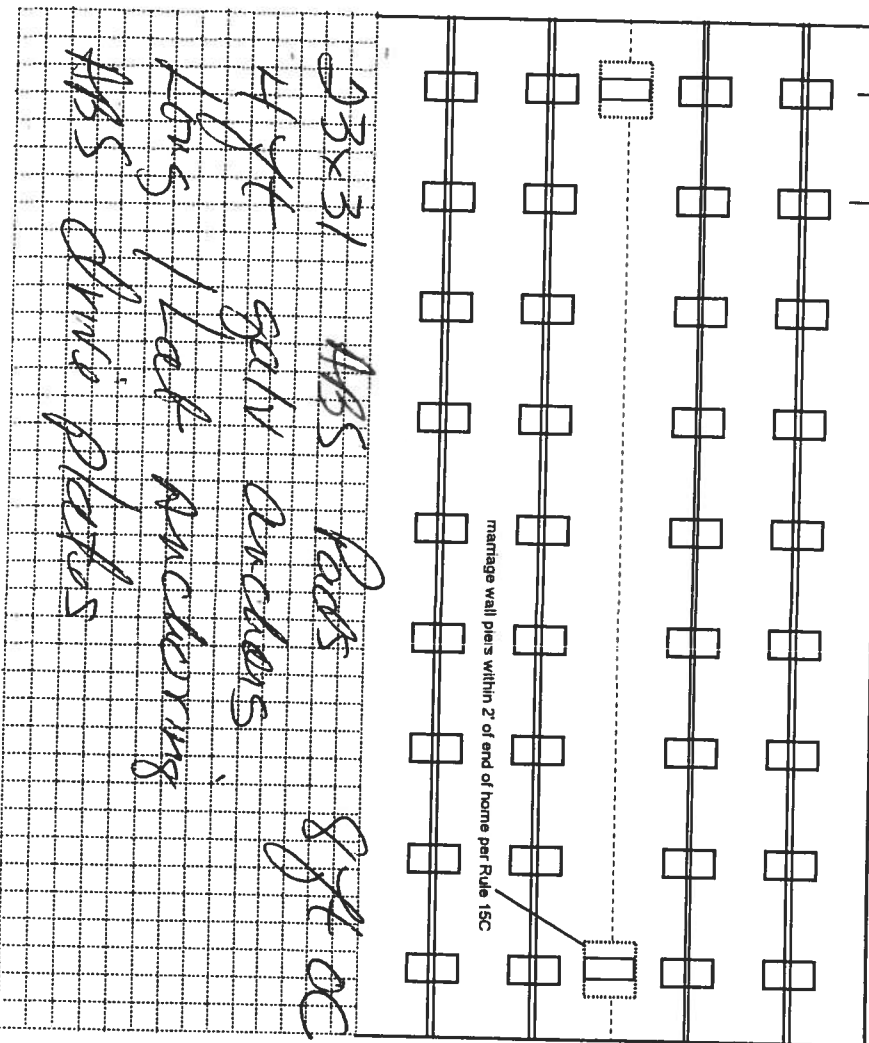 marriage wall piers within 2' of end of home per Rule 15C
23x31 ABS Pads 8ft OC
4ft galv anchors
Long / Lat Anchoring
ABS drive plates